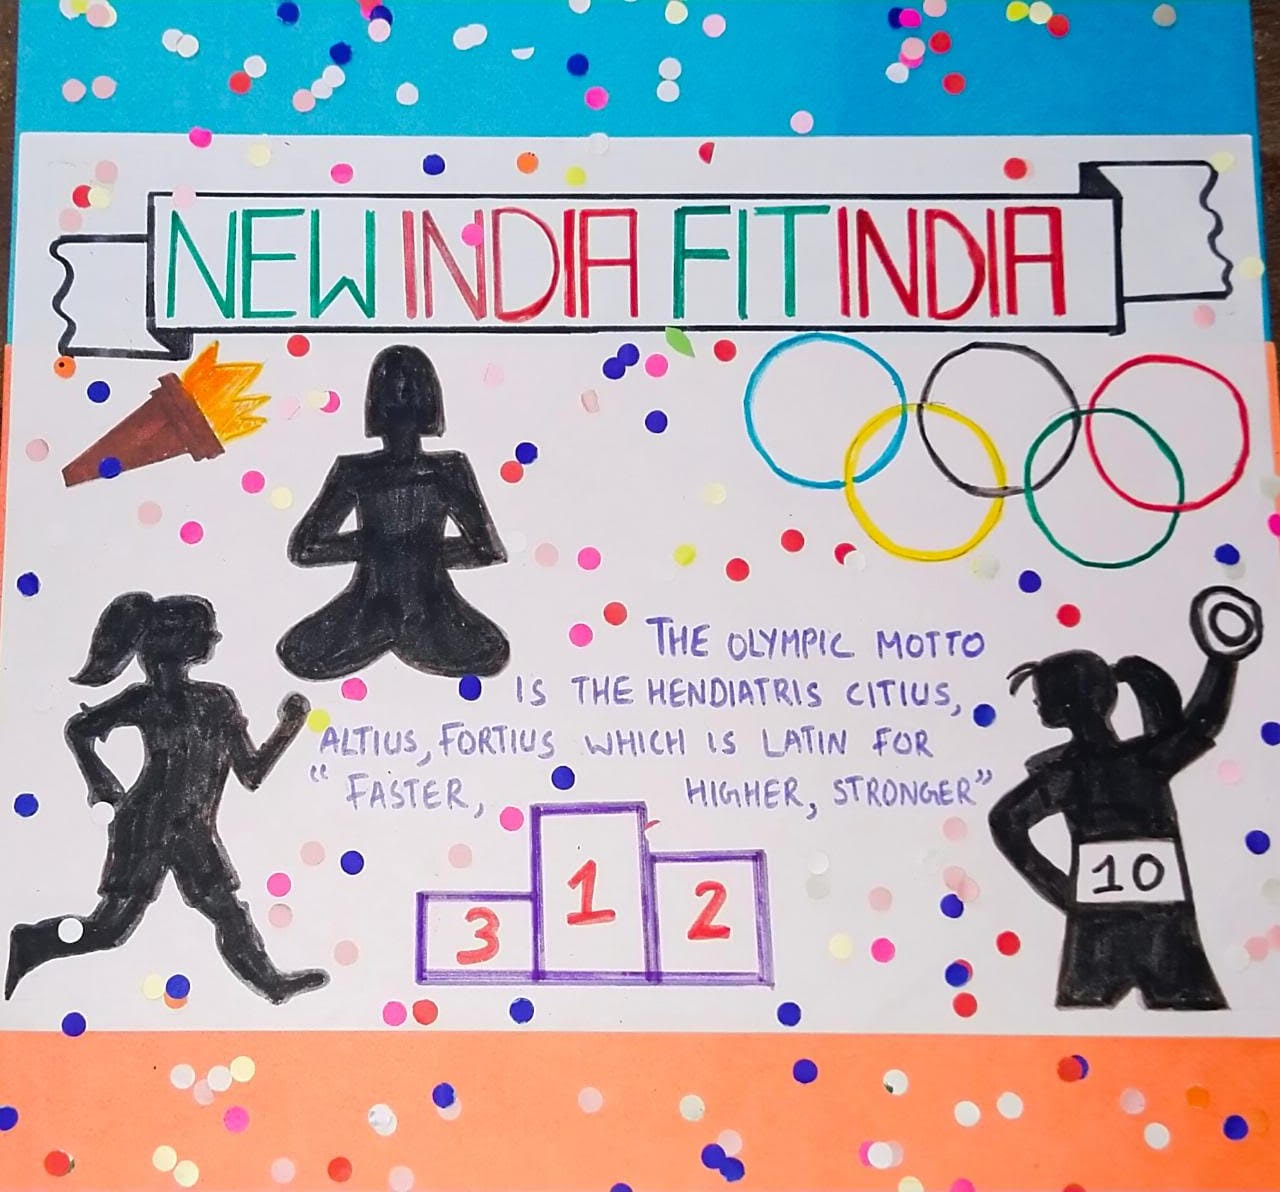 NEW INDIA FIT INDIA
THE OLYMPIC MOTTO
IS THE HENDIATRIS CITIUS,
ALTIUS, FORTIUS WHICH IS LATIN FOR
"FASTER, HIGHER, STRONGER"
10
1
2
3